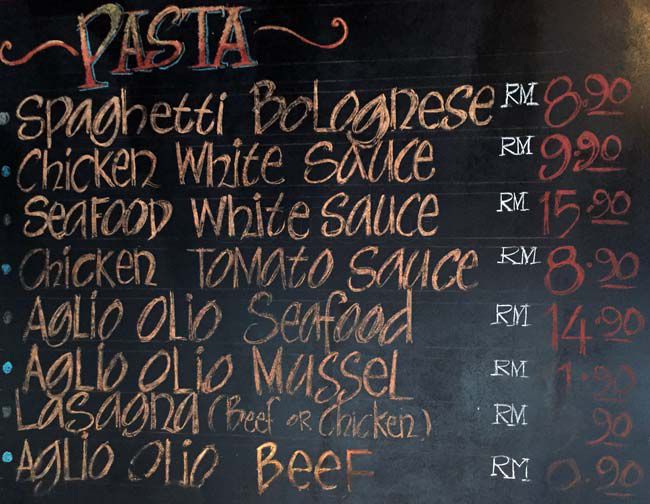 PASTA
Spaghetti Bolognese RM 8.90
Chicken White Sauce RM 9.90
Seafood White Sauce RM 15.90
Chicken Tomato Sauce RM 8.90
Aglio Olio Seafood RM 14.90
Aglio Olio Mussel RM
Lasagna (Beef or Chicken) RM
Aglio Olio Beef RM